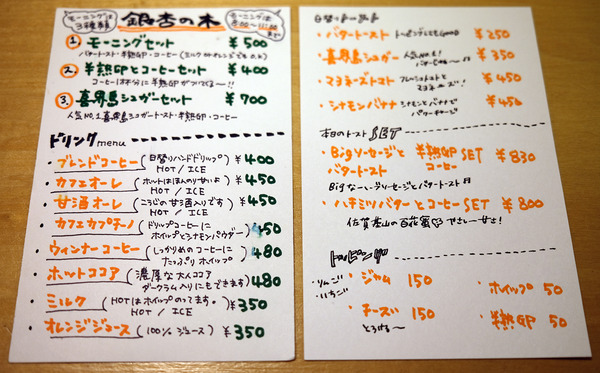 モーニングは
3種類
銀杏の木
モーニングは
8:00〜11:00
まで
1. モーニングセット ¥500
バタートースト・半熟GP・コーヒー (ミルクorオレンジでもOK)
2. 半熟GPとコーヒーセット ¥400
コーヒー1杯分に半熟GPがついてくる〜!!
3. 喜界島シュガーセット ¥700
人気NO.1喜界島シュガートースト・半熟GP・コーヒー
ドリンクmenu
・ブレンドコーヒー (日替りハンドドリップ) ¥400
HOT / ICE
・カフェオーレ (ホットはほんのり甘いよ) ¥450
HOT / ICE
・甘酒オーレ (こうじの甘酒入りです) ¥450
HOT / ICE
・カフェカプチーノ (ドリップコーヒーに ¥450
ホイップとシナモンパウダー)
・ウィンナーコーヒー (しっかりめのコーヒーに ¥480
たっぷりホイップ)
・ホットココア (濃厚な大人ココア 480
ダークラム入りにもできます)
・ミルク (HOTはホイップのってます。 ¥350
HOT / ICE
・オレンジジュース (100%ジュース) ¥350
日替トースト
・バタートースト トッピングしてもGOOD ¥250
・喜界島シュガー 人気NO.1! ¥350
・マヨネーズトマト フレッシュトマトと ¥450
マヨネーズ!
・シナモンバナナ シナモンとバナナで ¥450
本日のトースト SET
・Bigソーセージと 半熟GP SET ¥830
バタートースト コーヒー
Bigなーいソーセージとバタートースト
・ハチミツバターとコーヒーSET ¥800
佐賀参山の百花蜜 やさしー甘さ!
トッピング
・りんご
・いちご
・ジャム 150
・ホイップ 50
・チーズ 150
とろける〜
・半熟GP 50